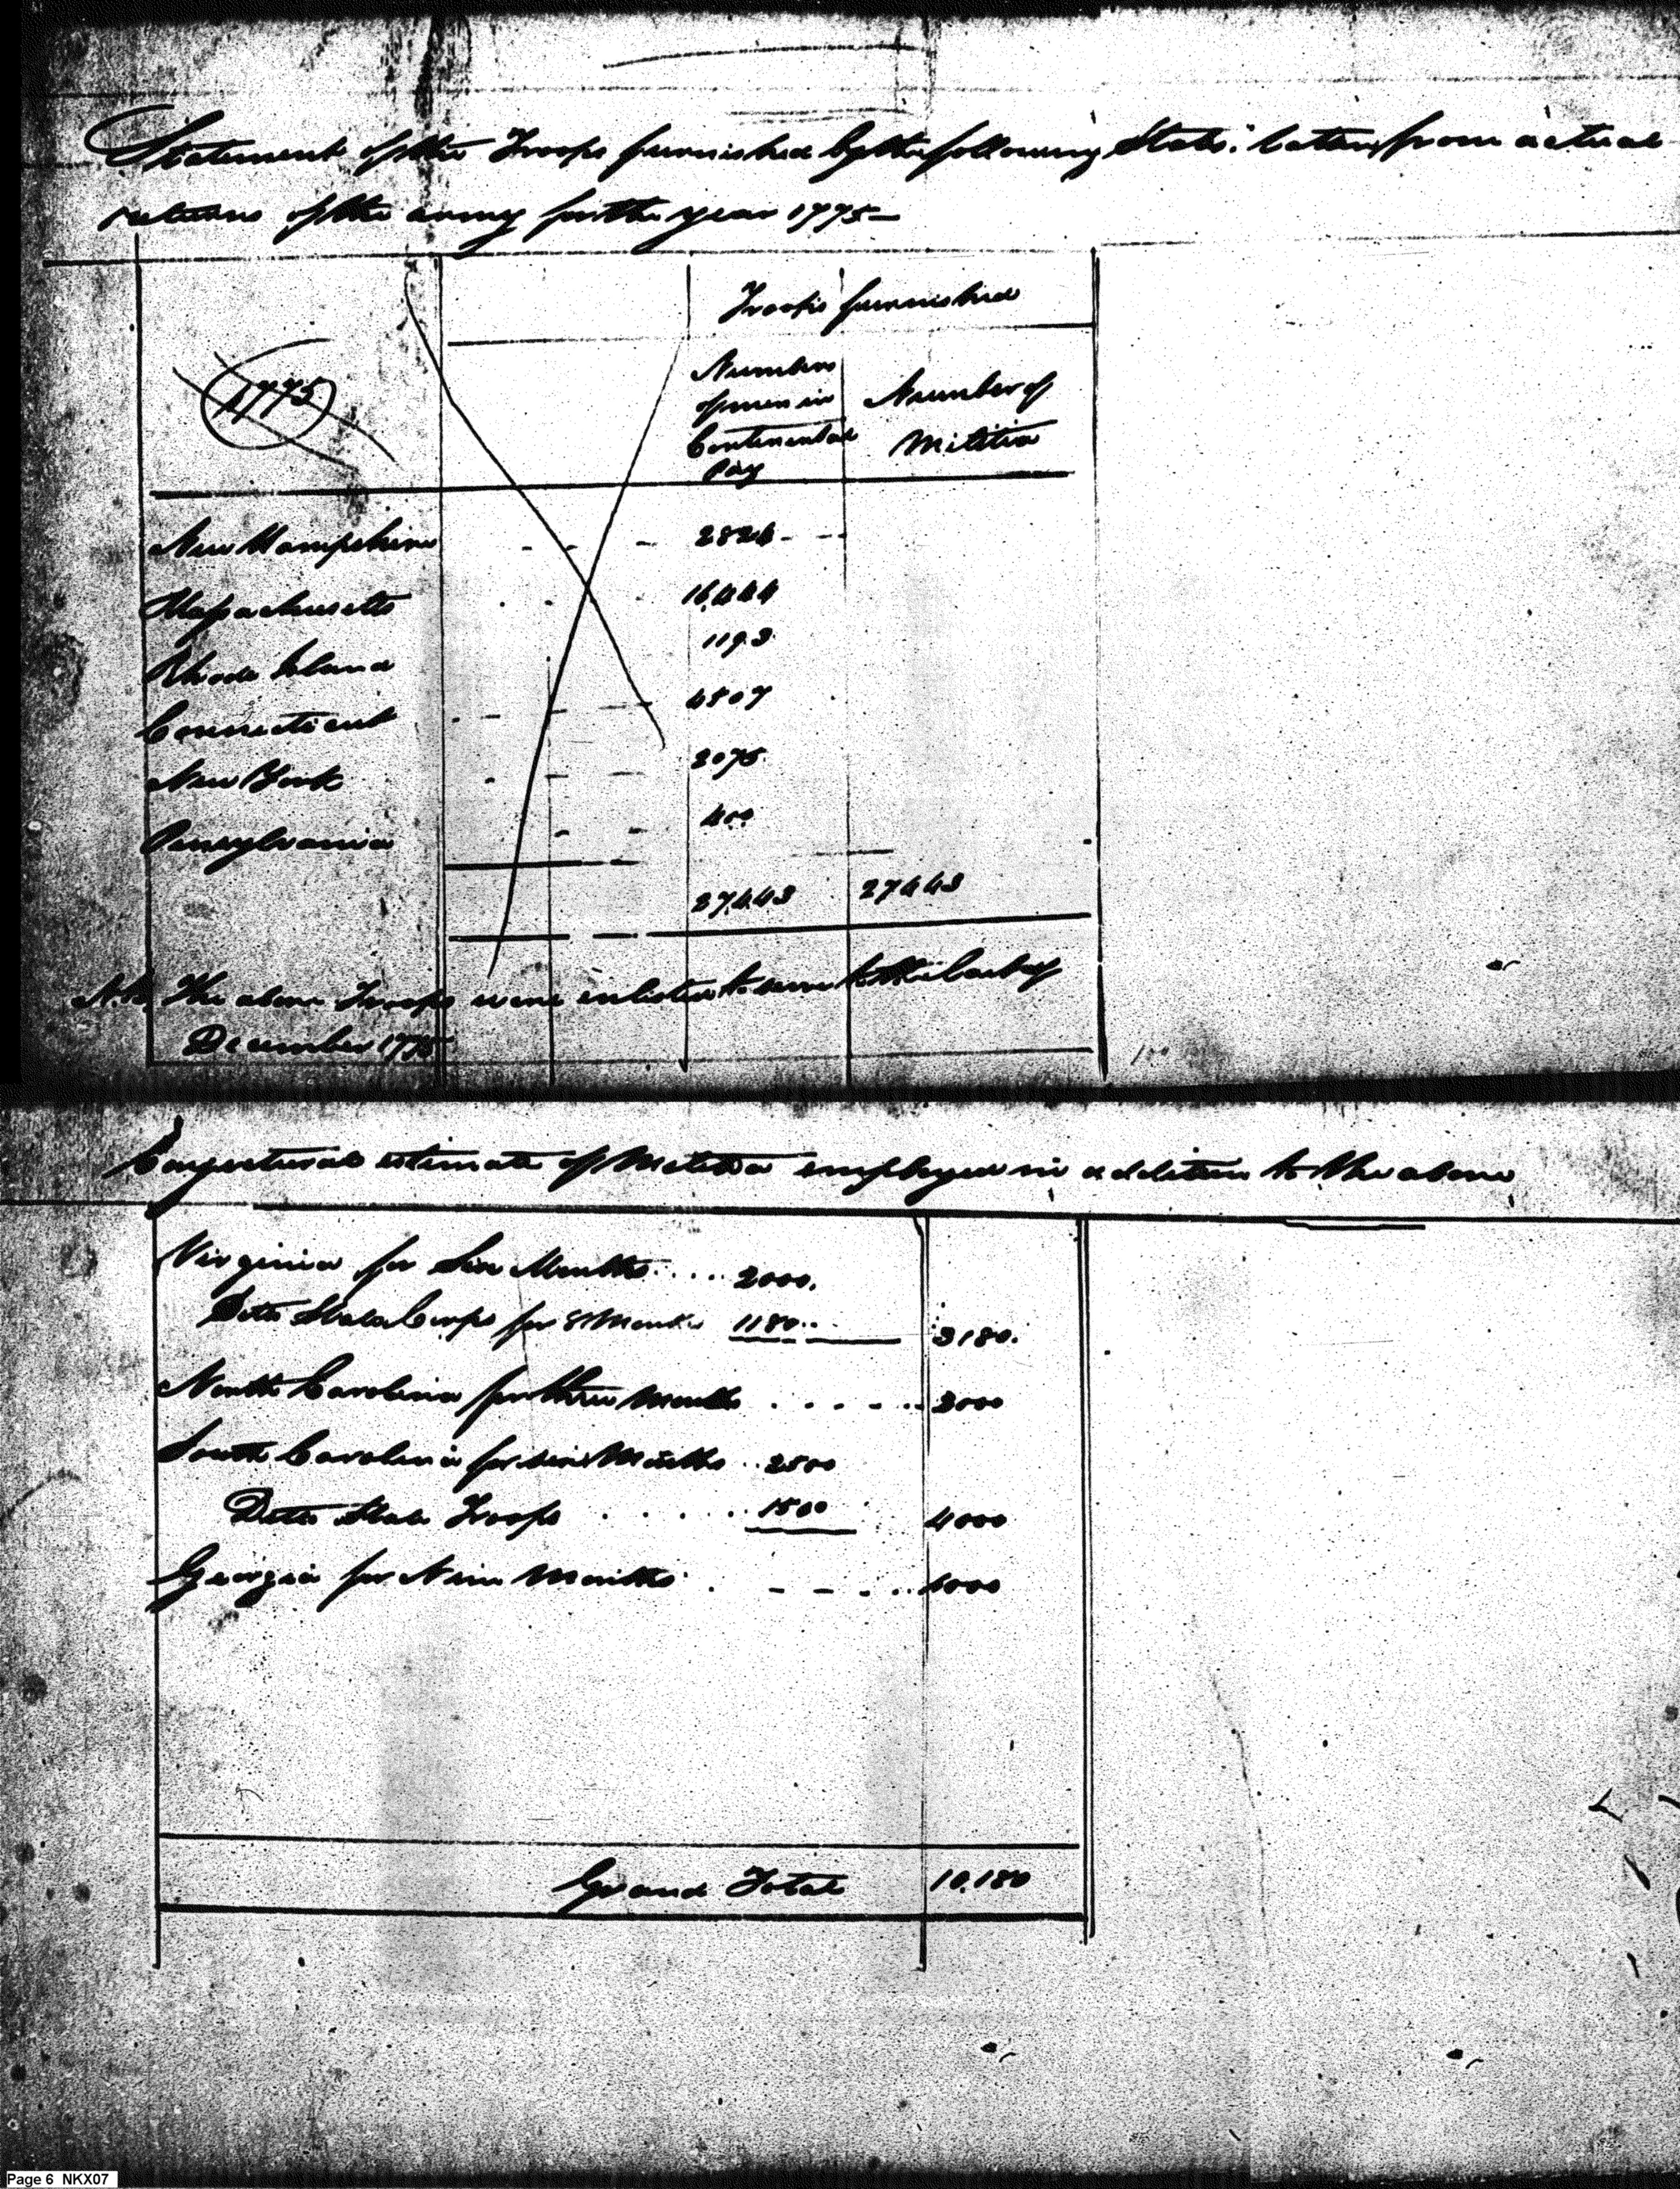 Statement of the Troops furnished by the following States: taken from actual
returns of the army for the year 1775—
Troops furnished
1775
Numbers
of men in
Continental
Pay
Number of
Militia
New Hampshire - - - 2824 - -
Massachusetts - - 16,444
Rhode Island 1193
Connecticut - - - - 4507
New York - - - 2075
Pensylvania - - 400
27,443 27443
N.B. The above Troops were enlisted to serve to the last of
December 1775
Conjectural estimate of Militia employed in addition to the above
Virginia for Six Months .... 2000.
Ditto State Corps for 8 Months 1180.. 3180.
North Carolina for three Months ...... 2000
South Carolina for six Months .. 2500
Ditto State Troops ..... 1500 4000
Georgia for Nine Months . - - - .. 1000
Grand Total 10,180
Page 6 NKX07